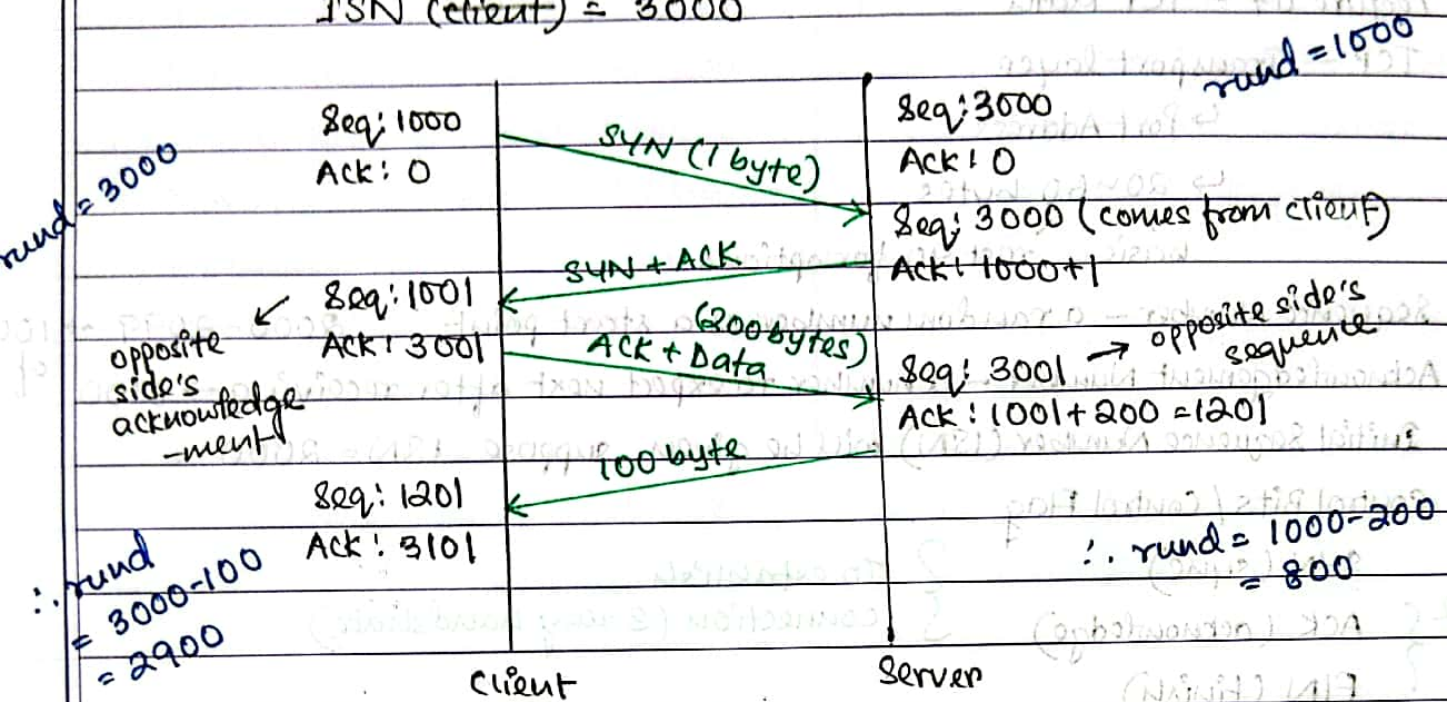 ISN (client) = 3000
rwnd = 1000
rwnd = 3000
Seq: 1000
Ack: 0
SYN (1 byte)
Seq: 3000
Ack: 0
Seq: 3000 (comes from client)
Ack: 1000+1
SYN + ACK
Seq: 1001
Ack: 3001
opposite
side's
acknowledge
-ment
(200 bytes)
ACK + Data
Seq: 3001 → opposite side's
sequence
Ack: 1001+200 = 1201
100 byte
Seq: 1201
Ack: 3101
∴ rwnd
= 3000-100
= 2900
∴ rwnd = 1000-200
= 800
Client
Server